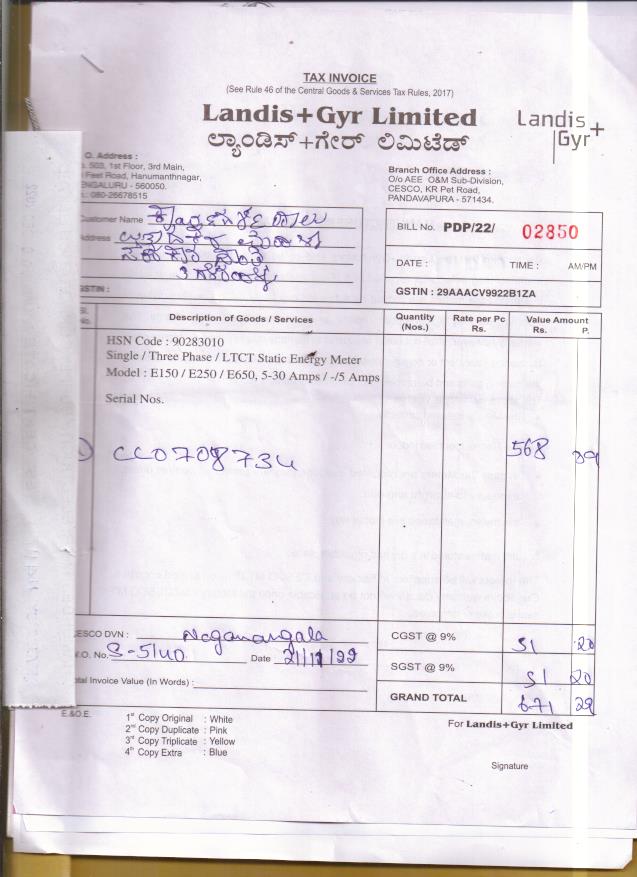 TAX INVOICE
(See Rule 46 of the Central Goods & Services Tax Rules, 2017)
Landis+Gyr Limited
ಲ್ಯಾಂಡಿಸ್+ಗೇರ್ ಲಿಮಿಟೆಡ್
Landis
Gyr+
O. Address :
503, 1st Floor, 3rd Main,
Feet Road, Hanumanthnagar,
ENGALURU - 560050.
: 080-26678515
Branch Office Address :
O/o AEE O&M Sub-Division,
CESCO, KR Pet Road,
PANDAVAPURA - 571434.
ustomer Name
ddress
GSTIN :
BILL No. PDP/22/ 02850
DATE : TIME : AM/PM
GSTIN : 29AAACV9922B1ZA
Sl. No. Description of Goods / Services Quantity (Nos.) Rate per Pc Rs. Value Amount Rs. P.
HSN Code : 90283010
Single / Three Phase / LTCT Static Energy Meter
Model : E150 / E250 / E650, 5-30 Amps / -/5 Amps
Serial Nos.
CC0708734 568 89
ESCO DVN : Naganangala
.O. No. S-5140 Date 21/11/22
tal Invoice Value (In Words) :
CGST @ 9% 51 20
SGST @ 9% 51 20
GRAND TOTAL 671 29
E.&O.E.
1st Copy Original : White
2nd Copy Duplicate : Pink
3rd Copy Triplicate : Yellow
4th Copy Extra : Blue
For Landis+Gyr Limited
Signature